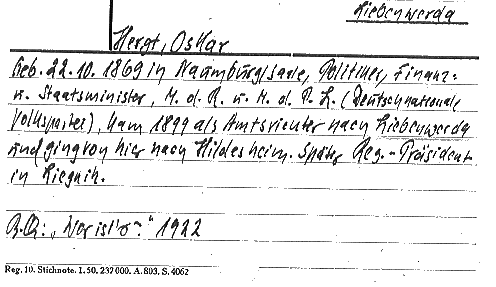 Liebenwerda
Hergt, Oskar
Geb. 22.10.1869 in Naumburg/Saale, Politiker, Finanz-
u. Staatsminister, M.d.R. u. M.d.P.L. (Deutschnationale
Volkspartei), kam 1899 als Amtsrichter nach Liebenwerda
und ging von hier nach Hildesheim. Später Reg.-Präsident
in Liegnitz.
"Wer ist's?" 1922
Reg. 10. Stichnote. I. 50. 237000. A. 803. S. 4062